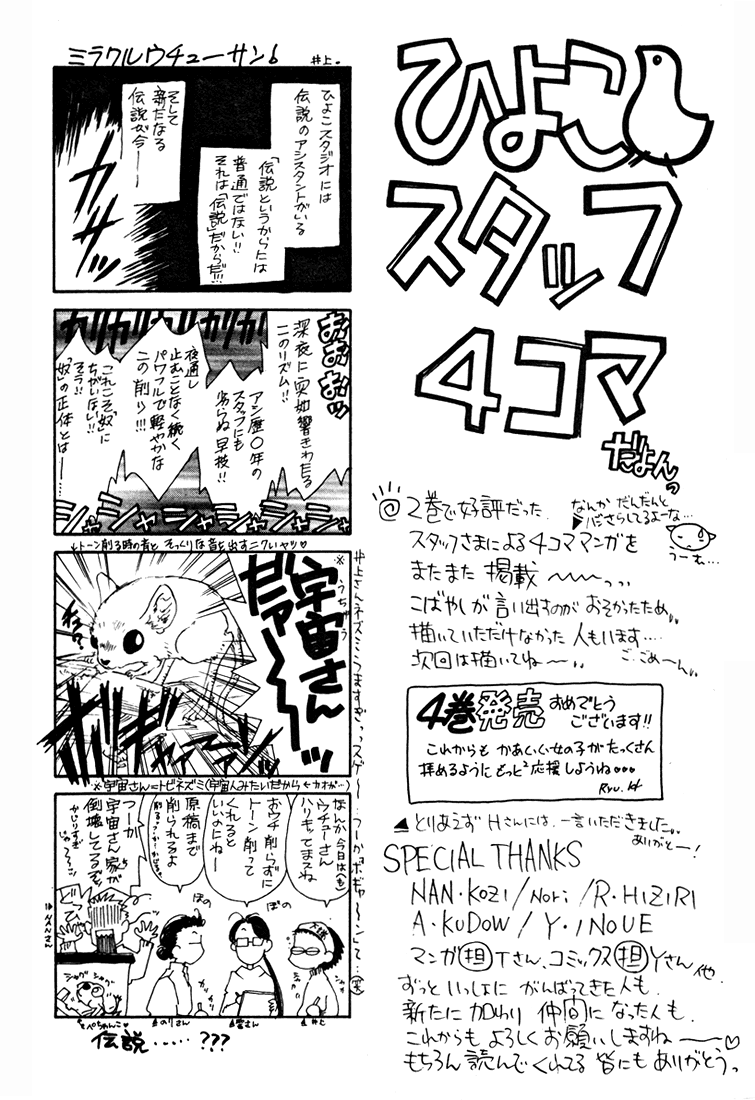 ひよこ
スタッフ
4コマ
だよんっ
2巻で好評だった
スタッフさまによる4コママンガを
またまた掲載〜〜〜っっ
こばやしが言い出すのがおそかったため、、
描いていただけなかった人もいます‥‥
次回は描いてね〜〜、、
ご、ごめーん、、
なんかだんだんと
うーむ…
4巻発売おめでとう
ございます!!
これからもかあいい女の子がたっくさん
拝めるようにもっと²応援しようね♡♡♡
Ryu.H
▲とりあえずHさんには、一言いただきました。
ありがとー!
SPECIAL THANKS
NAN・KOZI/NORI/R・HIZIRI
A・KUDOW/Y・INOUE
マンガ担Tさん、コミックス担Yさん他
ずっといっしょにがんばってきた人も
新たに加わり仲間になった人も
これからもよろしくお願いしますね〜〜♡
もちろん読んでくれてる皆にもありがとうっ
ミラクルウチューサン♪
井上
ひよこスタジオには
伝説のアシスタントがいる
「伝説というからには
普通ではない!!
それは「伝説」だからだ!!!
そして
新たなる
伝説が今――
カサッ
おおおおッ
深夜に突如響きわたる
このリズム!!
アシ歴〇年の
スタッフにも
劣らぬ早技!!
夜通し
止むことなく続く
パワフルで軽やかな
この削り!!!
これこそ「奴」に
ちがいない!!
そう!!
「奴」の正体とは――
ガリガリガリガリガリ
シャシャシャシャシャ
↓トーン削る時の音とそっくりな音を出すニクいヤツ♡
※うちゅう
宇宙さん
だァ〜〜〜ッ
井上さんネズミうますぎっっスゲー!
※宇宙さん=トビネズミ(宇宙人みたいだから←カオが…)
なんか今日は(も)
ウチューさん
ハリキッてますね
おウチ削らずに
トーン削って
くれると
いいのにねー
原稿まで
削られるよ
つーか
宇宙さん家が
倒壊してるぞっ
かじりすぎ
じゃ〜〜っ
ほの
ほの
シャグシャグ
▲のりさん
▲聖さん
▲井上
伝説‥‥‥???